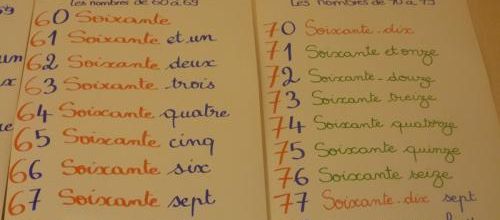 Les nombres de 60 à 69
60 Soixante
61 Soixante et un
62 Soixante deux
63 Soixante trois
64 Soixante quatre
65 Soixante cinq
66 Soixante six
67 Soixante sept
Les nombres de 70 à 79
70 Soixante-dix
71 Soixante et onze
72 Soixante-douze
73 Soixante treize
74 Soixante quatorze
75 Soixante quinze
76 Soixante seize
77 Soixante-dix sept